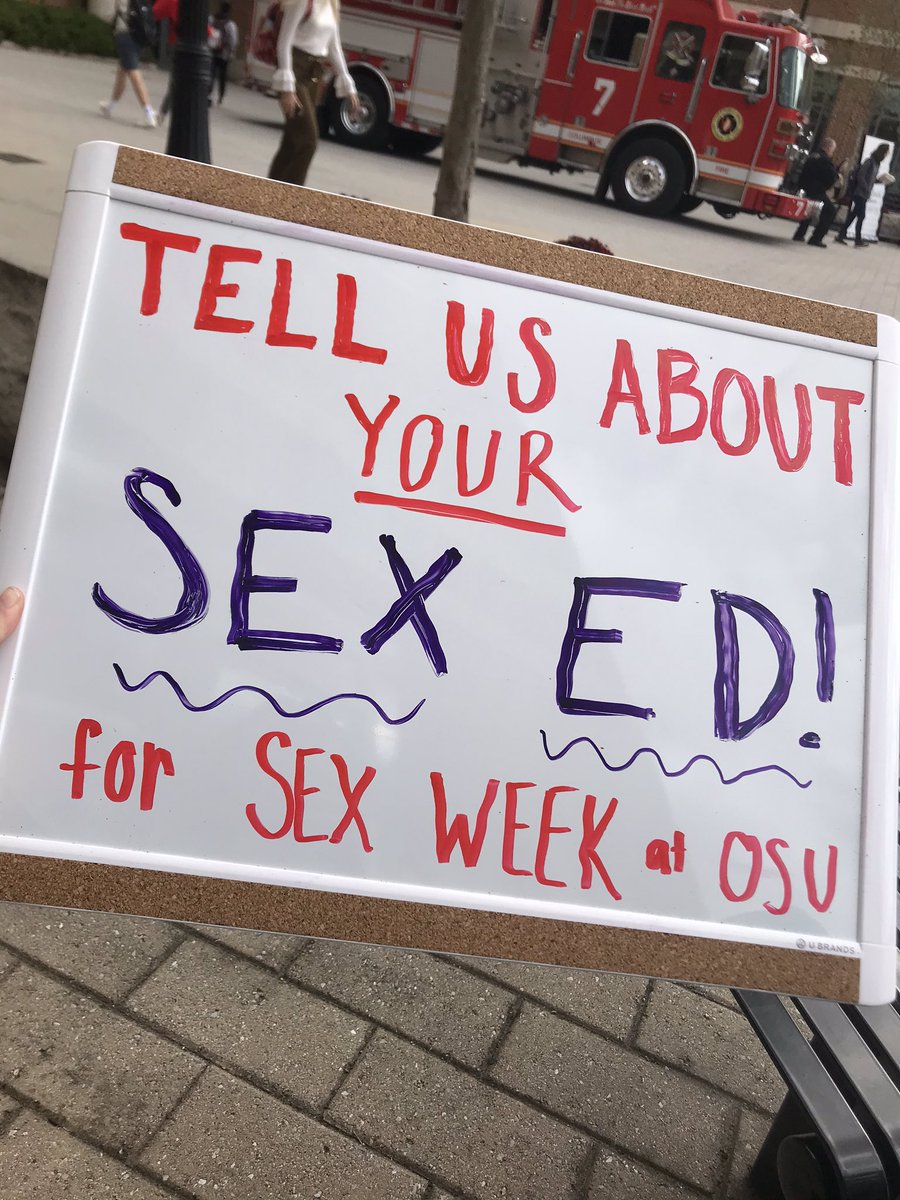 7
COLUMBUS
FIRE
7
TELL US ABOUT
YOUR
SEX ED!
for SEX WEEK at OSU
U BRANDS